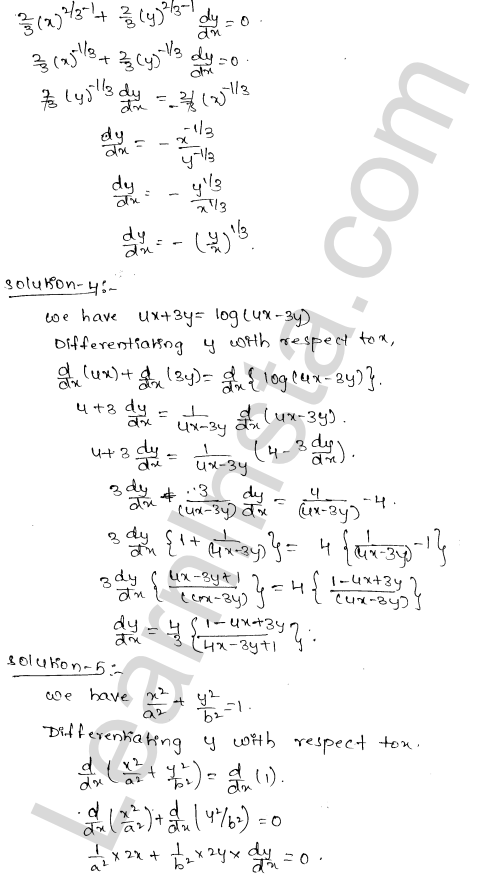 2/3 (x)^(2/3-1) + 2/3 (y)^(2/3-1) dy/dx = 0.
2/3 (x)^(-1/3) + 2/3 (y)^(-1/3) dy/dx = 0.
2/3 (y)^(-1/3) dy/dx = -2/3 (x)^(-1/3)
dy/dx = - x^(-1/3) / y^(-1/3)
dy/dx = - y^(1/3) / x^(1/3)
dy/dx = - (y/x)^(1/3).
Solution-4:-
we have 4x+3y = log(4x-3y)
Differentiating y with respect to x,
d/dx (4x) + d/dx (3y) = d/dx {log(4x-3y)}.
4+3 dy/dx = 1/(4x-3y) d/dx (4x-3y).
4+3 dy/dx = 1/(4x-3y) (4-3 dy/dx).
3 dy/dx + 3/(4x-3y) dy/dx = 4/(4x-3y) - 4.
3 dy/dx {1 + 1/(4x-3y)} = 4 {1/(4x-3y) - 1}
3 dy/dx {(4x-3y+1)/(4x-3y)} = 4 {(1-4x+3y)/(4x-3y)}
dy/dx = 4/3 {(1-4x+3y)/(4x-3y+1)}.
Solution-5:-
we have x²/a² + y²/b² = 1.
Differentiating y with respect to x.
d/dx (x²/a² + y²/b²) = d/dx (1).
d/dx (x²/a²) + d/dx (y²/b²) = 0
1/a² × 2x + 1/b² × 2y × dy/dx = 0.
LearnInsta.com